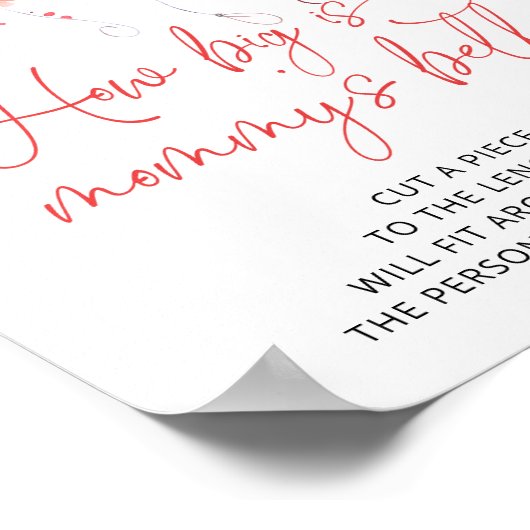 How big is
mommy's bell
CUT A PIECE
TO THE LEN
WILL FIT ARO
THE PERSON